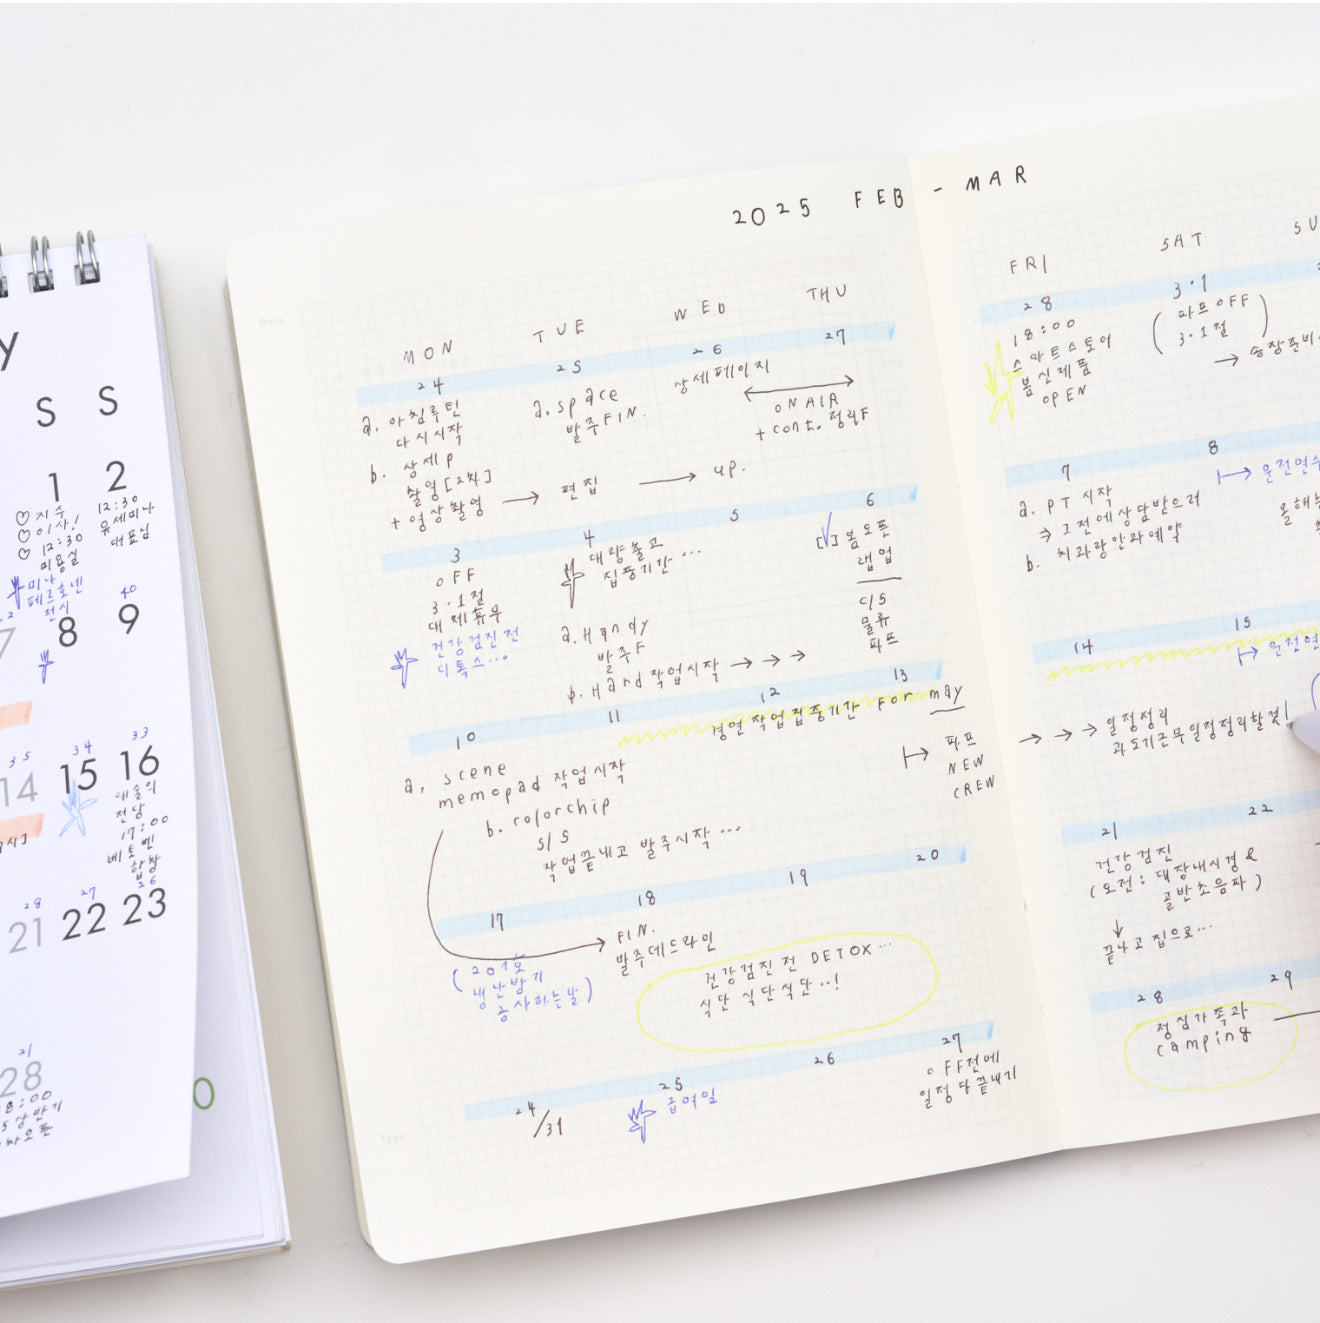 y
S S
1 2
♡ 지수
♡ 이사!
♡ 12:30
미용실
12:30
유세미나
대표님
미나
페르호넨
전시
7 8 9
40
35 34 33
14 15 16
예술의
전당
17:00
베토벤
합창
28 27 26
21 22 23
21
28
8:00
상반기
오픈
0
Date.
2025 FEB - MAR
MON TUE WED THU
24 25 26 27
a. 아침루틴
다시시작
b. 상세P
촬영[2차]
+ 영상촬영 → 편집 → up.
a. space
발주FIN.
상세페이지
ON AIR
+ cont. 정리F
3 4 5 6
OFF
3·1절
대체휴무
건강검진 전
디톡스...
대량출고
집중기간...
a. Handy
발주F
b. Hard 작업시작 → → →
[ ] 봄오픈
랩업
C/S
물류
파프
10 11 12 13
경연작업집중기간 For may
a. scene
memopad 작업시작
b. colorchip
S/S
작업끝내고 발주시작...
파프
NEW
CREW
17 18 19 20
(201호
냉난방기
공사하는날)
FIN.
발주데드라인
건강검진전 DETOX...
식단 식단식단..!
24/31 25 26 27
급여일
OFF전에
일정 다 끝내기
Type
FRI SAT SU
28 3·1
18:00
스마트스토어
봄신제품
OPEN
(파프OFF
3·1절)
→ 송장준비
7 8
a. PT 시작
→ 그전에상담받으러
b. 치과랑안과예약
운전연수
올해
14 15
운전연
→ → → 일정정리
과도기근무일정정리할것!
21 22
건강검진
(오전: 대장내시경 &
골반초음파)
↓
끝나고 집으로...
28 29
점심가족과
camping